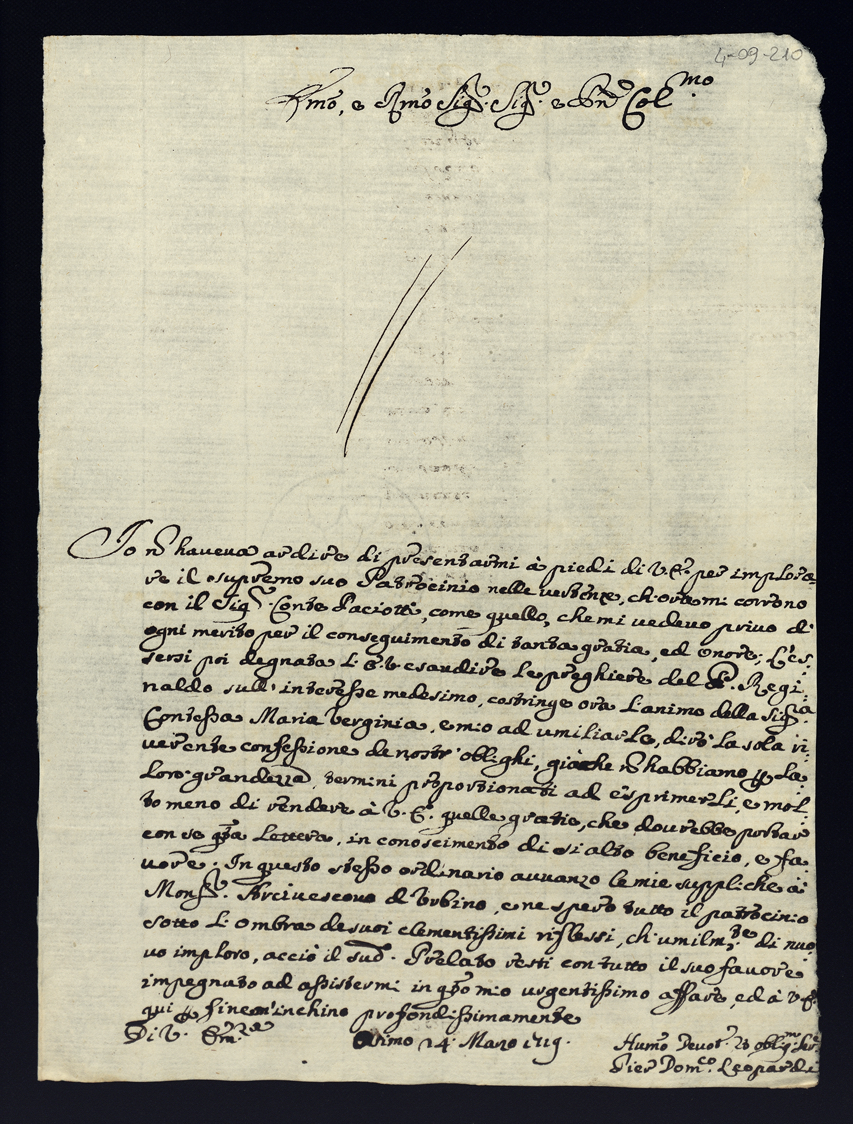 4-09-210
Emo, e Rmo Sigr. Sigr. e Pne Colmo
Io nō haueua ardire di presentarmi à piedi di V. E. per implora=
re il supremo suo Patrocinio nelle vertenze, ch'ora mi corrono
con il Sigr. Conte Paciotti, come quello, che mi uedeuo priuo di
ogni merito per il conseguimento di tanta gratia, ed onore; L'es=
sersi poi degnata L' E. V. esaudire le preghiere del P. Regi
naldo sull' interesse medesimo, costringe ora l'animo della Sigra
Contessa Maria Verginia, e mio ad umiliarle, dirò la sola ri=
uerente confessione de nostr' oblighi, giàche nō habbiamo p la
loro grandezza, termini proportionati ad esprimerli, e mol=
to meno di rendere à V. E. quelle gratie, che dourebbe portar
con se qta Lettera, in conoscimento di si alto beneficio, e fa
uore. In questo stesso ordinario auuanzo le mie suppliche à
Monsr. Arciuescouo d' Vrbino, e ne spero tutto il patrocinio
sotto l' ombra de suoi clementissimi riflessi, ch' umilmte di nuo
uo imploro, acciò il sudo. Prelato resti con tutto il suo fauore
impegnato ad assistermi in qto mio urgentissimo affare, ed à V. E.
qui p fine m'inchino profondissimamente
Di V. Emza
14 Marzo 1719.
Humo Deuot. et obligmo Ser.
Pier Domco. Leopardi